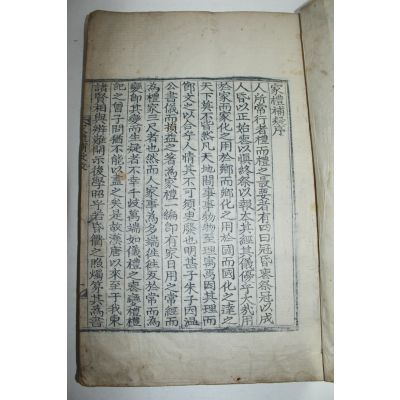 家禮補疑序
人所常行者禮而禮之最要者有四曰冠昏喪祭冠以成
人昏以正始喪以愼終祭以報本其經其儀侔乎大哉用
於家而家化之用於鄕而鄕化之用於國而國化之達之
天下莫不皆然凡天地間事事物物至理寓焉因其理而
節文之以合人情其不可須臾廢也明甚子朱子因溫
公書儀而損益之著爲家禮一編卽有家日用之常經而
爲禮家三尺者也然而人家事爲多端往往反於常而爲
變卽其變而生疑者不幸千歧萬端如儀禮之喪變禮禮
記之曾子問猶不能以盡之矣是故漢唐以來至于我東
諸賢相與辨難開示後學昭乎若昏衢之照燭算其爲言